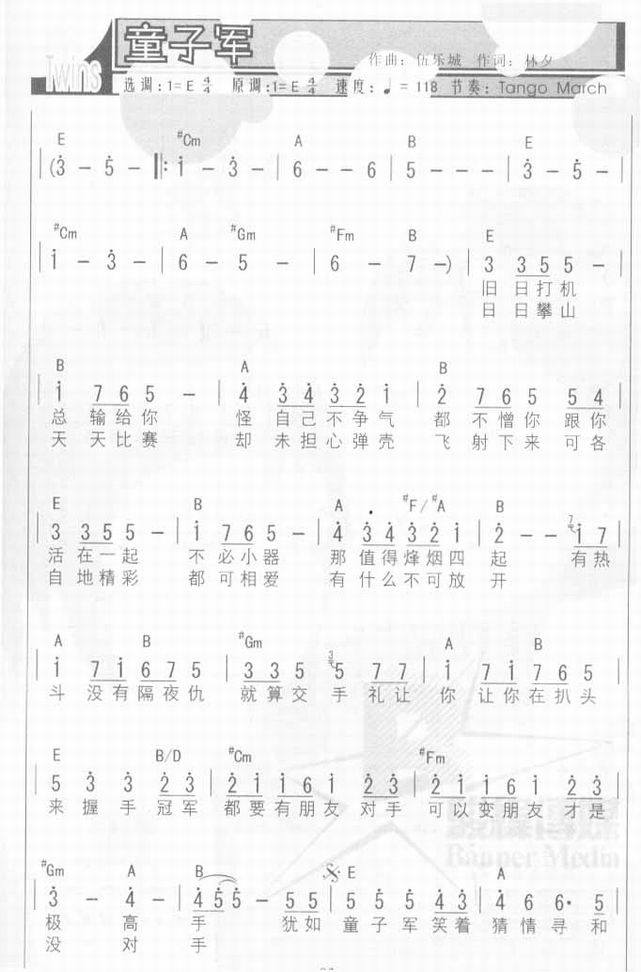 Twins
童子军
作曲：伍乐城 作词：林夕
选调：1=E 4/4 原调：1=E 4/4 速度：♩= 118 节奏：Tango March
E #Cm A B E
|(3 － 5 －‖: 1 － 3 －| 6 － － 6 | 5 － － －| 3 － 5 －|
#Cm A #Gm #Fm B E
| 1 － 3 －| 6 － 5 － | 6 － 7 －)| 3 3 5 5 5 －|
旧 日 打 机
日 日 攀 山
B A B
| 1 7 6 5 － | 4 3 4 3 2 1 | 2 7 6 5 5 4 |
总 输 给 你 怪 自 己 不 争 气 都 不 憎 你 跟 你
天 天 比 赛 却 未 担 心 弹 壳 飞 射 下 来 可 各
E B A #F/#A B
| 3 3 5 5 － | 1 7 6 5 － | 4 3 4 3 2 1 | 2 － － 7 1 7 |
活 在 一 起 不 必 小 器 那 值 得 烽 烟 四 起 有 热
自 地 精 彩 都 可 相 爱 有 什 么 不 可 放 开
A B #Gm A B
| 1 7 1 6 7 5 | 3 3 5 3 5 7 7 | 1 7 1 7 6 5 |
斗 没 有 隔 夜 仇 就 算 交 手 礼 让 你 让 你 在 扒 头
E B/D #Cm #Fm
| 5 3 3 2 3 | 2 1 1 6 1 2 3 | 2 1 1 6 1 2 3 |
来 握 手 冠 军 都 要 有 朋 友 对 手 可 以 变 朋 友 才 是
#Gm A B E A
| 3 － 4 －| 4 5 5 － 5 5 | 5 5 5 4 3 | 4 6 6· 5 |
极 高 手 犹 如 童 子 军 笑 着 猜 情 寻 和
没 对 手
Banner Media